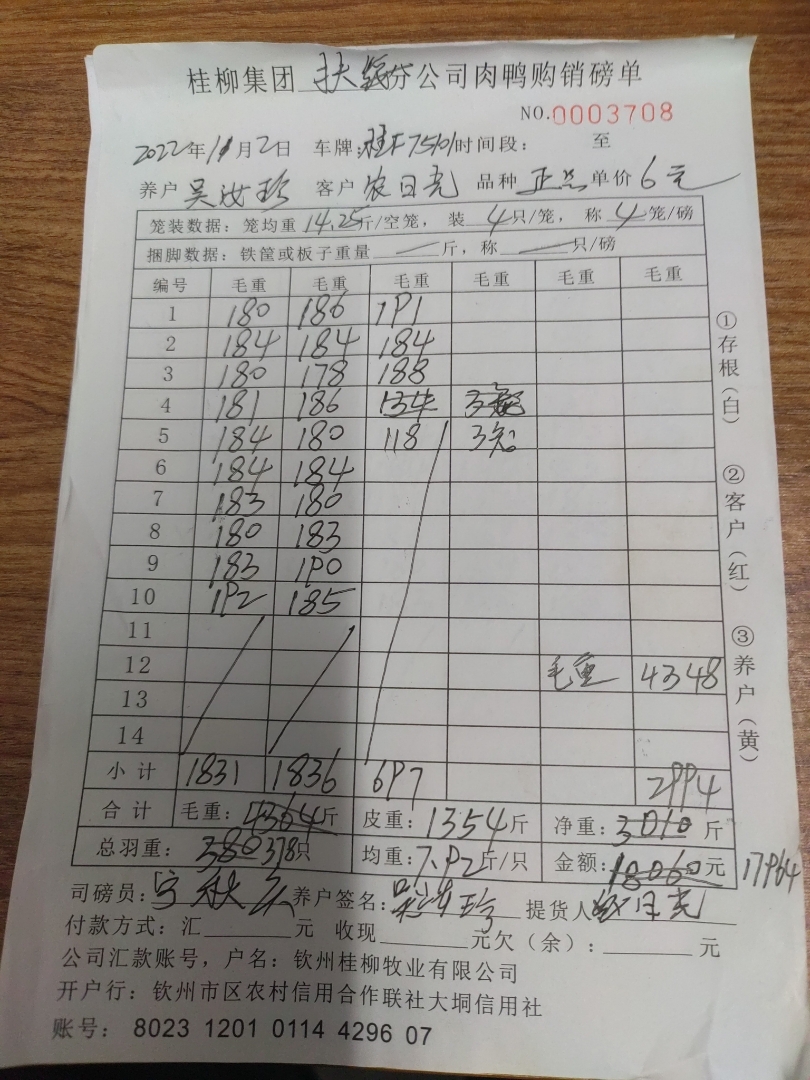 桂柳集团 扶绥分公司肉鸭购销磅单
NO.0003708
2022年11月2日 车牌:桂F75101时间段: 至
养户 吴汝珍 客户 农日亮 品种 单价 6元
笼装数据: 笼均重 14.25斤/空笼, 装 4只/笼, 称 4笼/磅
捆脚数据: 铁筐或板子重量 斤, 称 只/磅
编号 毛重 毛重 毛重 毛重 毛重 毛重
1 180 186 191
2 184 184 184
3 180 178 188
4 181 186
5 184 180 118 3笼
6 184 184
7 183 180
8 180 183
9 183 190
10 192 185
11
12 毛重 4348
13
14
小计 1831 1836 697 2994
合计 毛重: 4364斤 皮重: 1354斤 净重: 3010斤
总羽重: 380 378只 均重: 7.92斤/只 金额: 18060元 17964
司磅员: 养户签名: 吴汝珍 提货人 农日亮
付款方式: 汇 元 收现 元欠(余): 元
公司汇款账号, 户名: 钦州桂柳牧业有限公司
开户行: 钦州市区农村信用合作联社大垌信用社
账号: 8023 1201 0114 4296 07
①存根(白)
②客户(红)
③养户(黄)